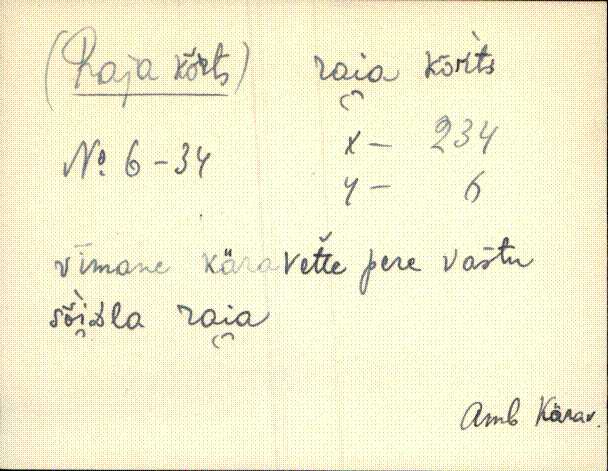 (Raja kõrts) rai̯a kõrìts
№ 6-34 x — 234
y — 6
vīmane käravette pere vastu
sõi̯dla rai̯a
Amb Kärav.